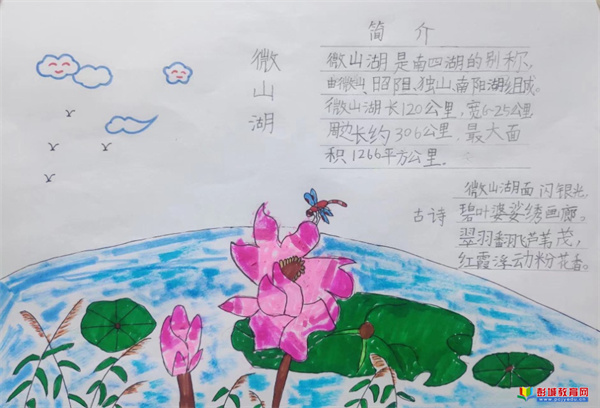 微山湖
简介
微山湖是南四湖的别称,
由微山、昭阳、独山、南阳湖组成。
微山湖长120公里,宽6-25公里
周边长约306公里,最大面
积1266平方公里.
古诗
微山湖面闪银光,
碧叶婆娑绣画廊。
翠羽翻飞芦苇茂,
红霞浮动粉花香。
彭城教育网